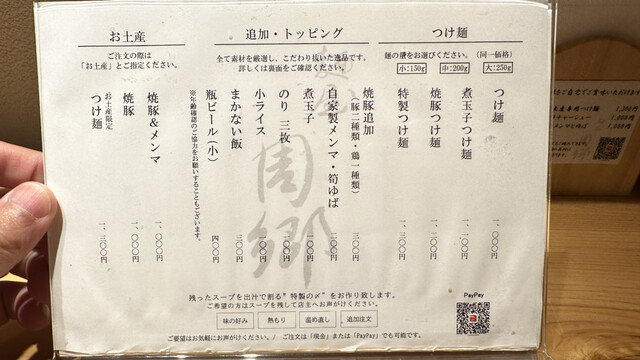 つけ麺
麺の量をお選びください。(同一価格)
小:150g 中:200g 大:250g
つけ麺 一、〇〇〇円
煮玉子つけ麺 一、一〇〇円
焼豚つけ麺
特製つけ麺
追加・トッピング
全て素材を厳選し、こだわり抜いた逸品です。
詳しくは裏面をご確認ください。
焼豚追加 三〇〇円
(豚二種類・鶏一種類)
自家製メンマ・筍ゆば 二〇〇円
煮玉子 一〇〇円
のり 三枚 一〇〇円
小ライス 一〇〇円
まかない飯 三〇〇円
瓶ビール(小) 四〇〇円
※年齢確認のご協力をお願いすることもございます。
お土産
ご注文の際は
「お土産」とご指定ください。
焼豚&メンマ 一、〇〇〇円
焼豚 一、〇〇〇円
お土産限定
つけ麺 一、三〇〇円
周郷
残ったスープを出汁で割る"特製の〆"をお作り致します。
ご希望の方はスープを残して店主へお声がけください。
味の好み 熱もり 温め直し 追加注文
ご要望はお気軽にお声がけください。/ ご注文は「現金」または「PayPay」でも可能です。
PayPay